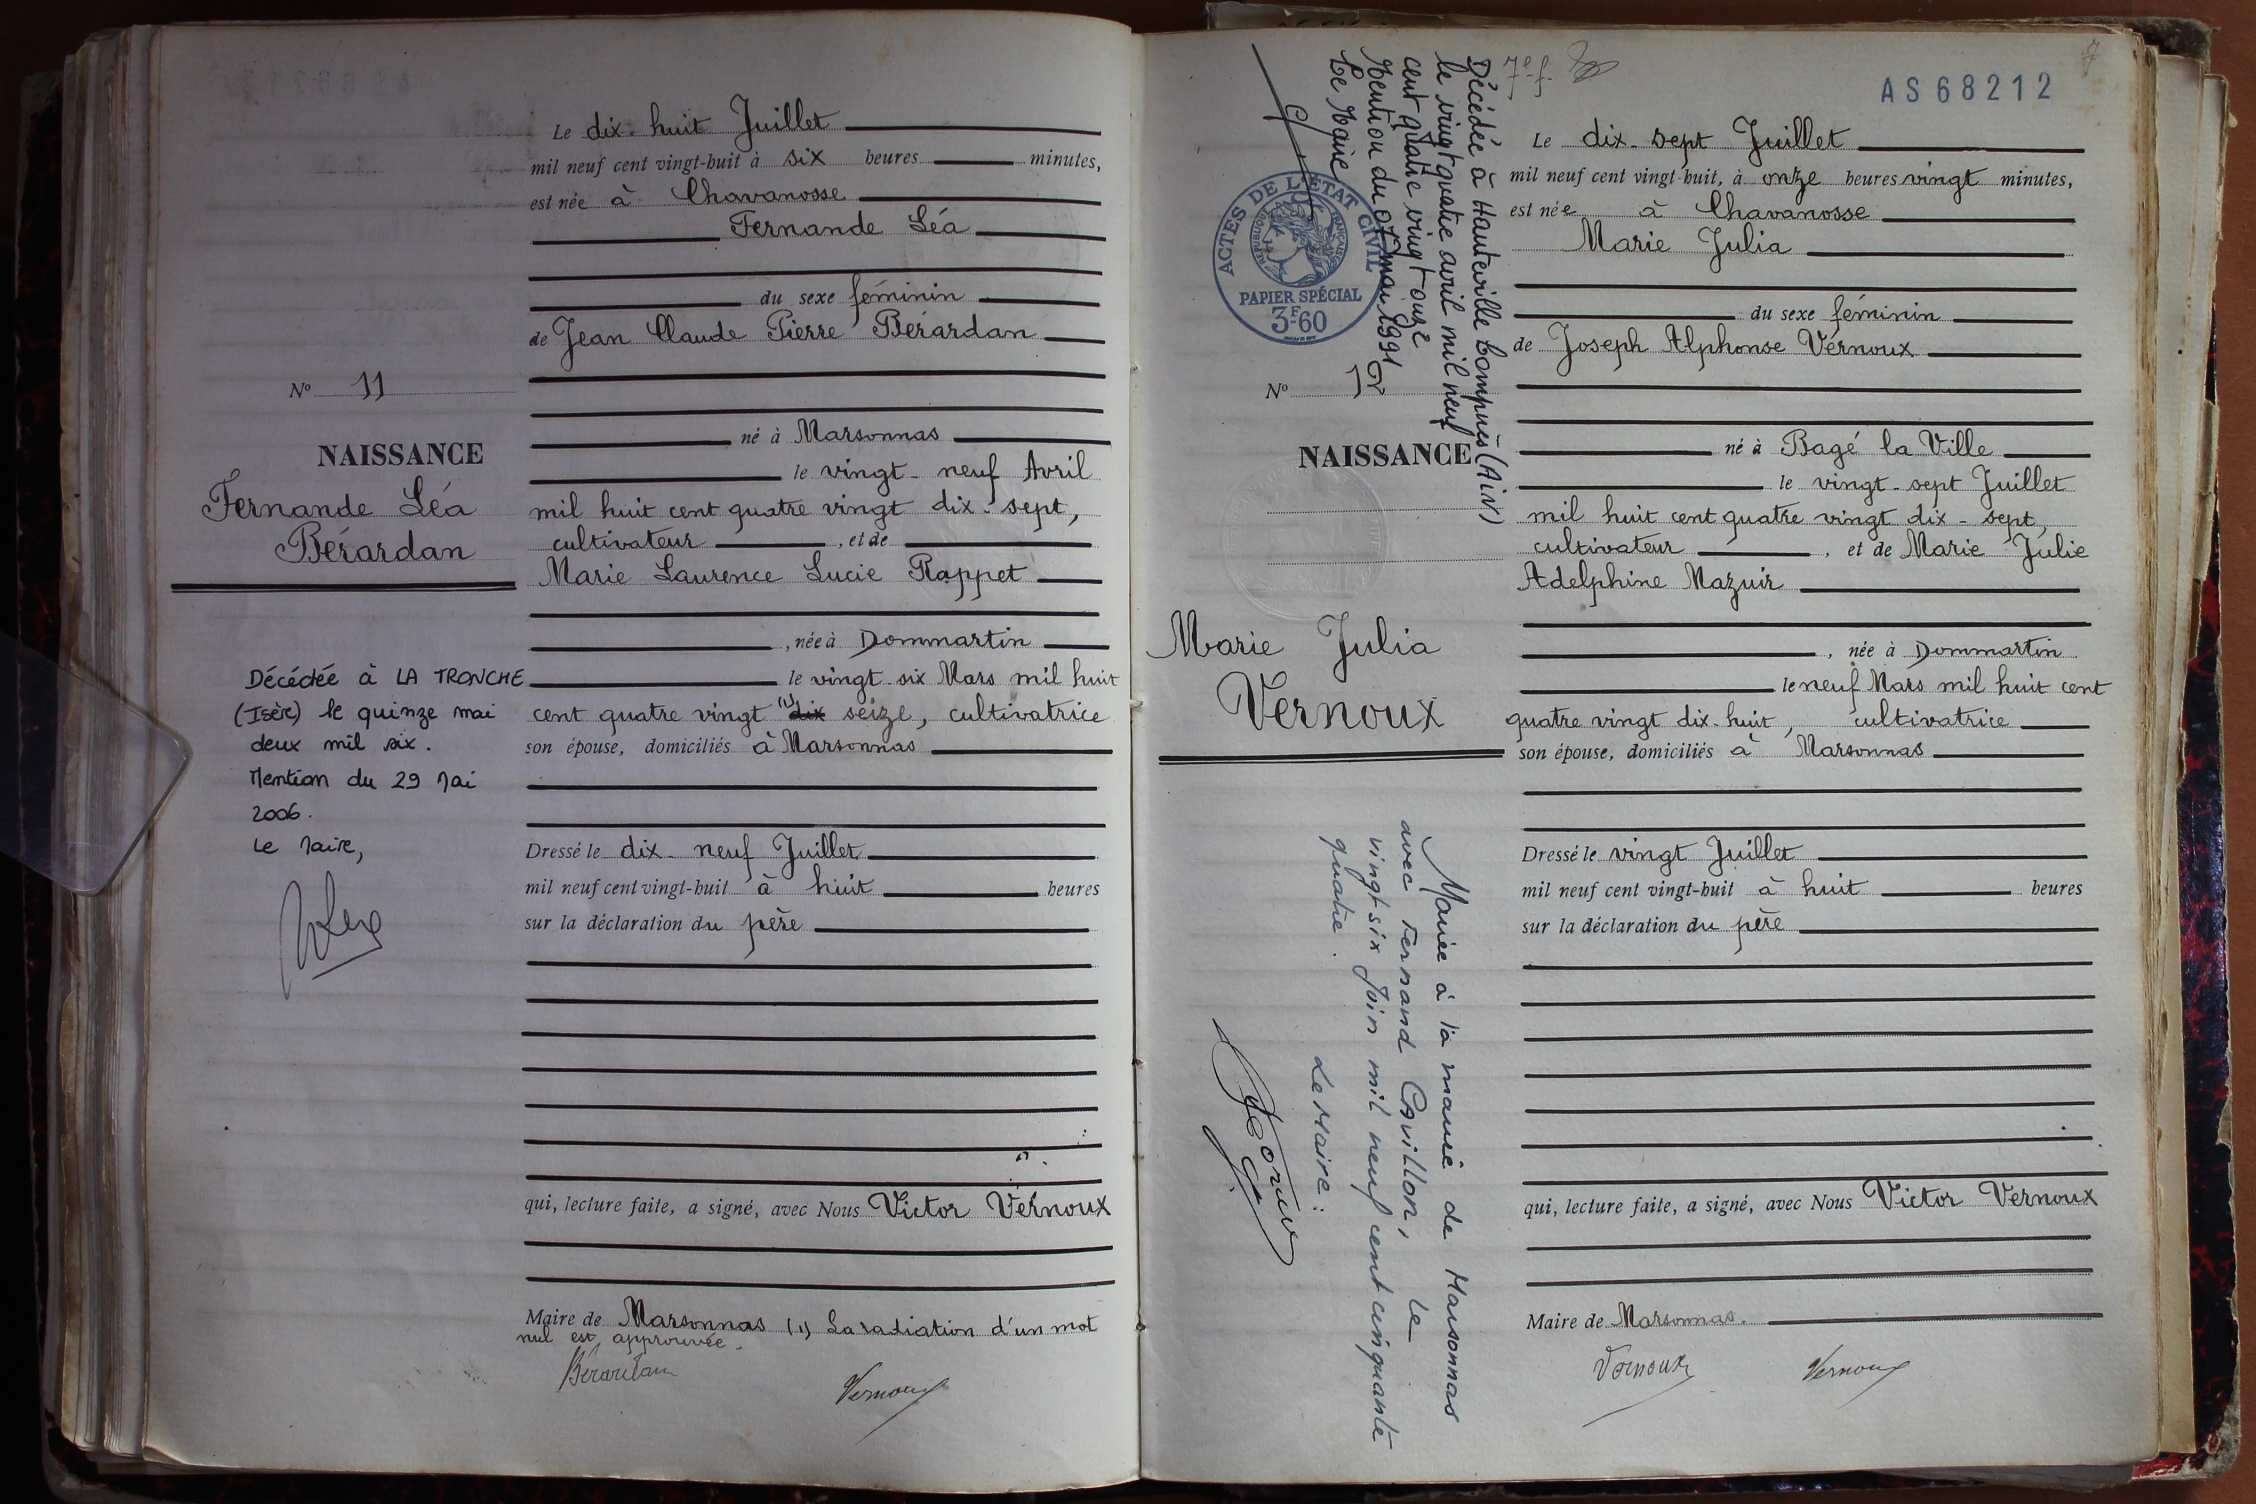 Le dix-huit Juillet
mil neuf cent vingt-huit à six heures minutes,
est née à Chavanosse
Fernande Léa
du sexe féminin
de Jean Claude Pierre Bérardan
N° 11
né à Marsonnas
NAISSANCE
le vingt-neuf Avril
Fernande Léa
mil huit cent quatre vingt dix-sept,
Bérardan
cultivateur, et de
Marie Laurence Lucie Rappet
, née à Dommartin
le vingt-six Mars mil huit
cent quatre vingt (1) dix seize, cultivatrice
son épouse, domiciliés à Marsonnas
Décédée à LA TRONCHE
(Isère) le quinze mai
deux mil six.
Mention du 29 Mai
2006.
Le Maire,
Dressé le dix-neuf Juillet
mil neuf cent vingt-huit à huit heures
sur la déclaration du père
qui, lecture faite, a signé, avec Nous Victor Vernoux
Maire de Marsonnas (1) La radiation d'un mot
nul est approuvée.
Bérardan
Vernoux
7e f.
7
AS68212
Décédée à Hauteville Lompnes (AIN)
le vingt quatre avril mil neuf
cent quatre vingt onze
Mention du 07 mai 1991
Le Maire
ACTES DE L'ETAT CIVIL
REPUBLIQUE FRANÇAISE
PAPIER SPÉCIAL
3F60
Le dix-sept Juillet
mil neuf cent vingt-huit, à onze heures vingt minutes,
est née à Chavanosse
Marie Julia
du sexe féminin
de Joseph Alphonse Vernoux
N° 12
né à Bagé la Ville
NAISSANCE
le vingt-sept Juillet
mil huit cent quatre vingt dix-sept,
cultivateur, et de Marie Julie
Adelphine Mazuir
Marie Julia
Vernoux
, née à Dommartin
le neuf Mars mil huit cent
quatre vingt dix-huit, cultivatrice
son épouse, domiciliés à Marsonnas
Mariée à la mairie de Marsonnas
avec Fernand CAVILLON, le
vingt six Juin mil neuf cent cinquante
quatre.
Le Maire :
Dressé le vingt Juillet
mil neuf cent vingt-huit à huit heures
sur la déclaration du père
qui, lecture faite, a signé, avec Nous Victor Vernoux
Maire de Marsonnas.
Vernoux
Vernoux